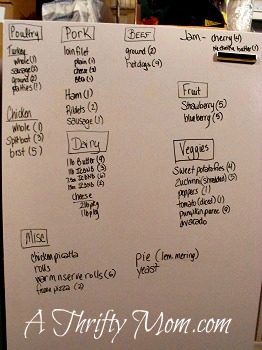 Poultry
Turkey
whole (1)
sausage (2)
ground (2)
patties (1)
Chicken
whole (1)
Split bst (3)
brst (5)
Pork
loin filet
plain (1)
cheese (2)
BBQ (1)
Ham (1)
Riblets (2)
sausage (1)
Dairy
1lb Butter (9)
cheese
2lb pkg
1lb pkg
BEEF
ground (2)
hotdogs (9)
Jam - cherry (4)
butter (1)
Fruit
Strawberry (5)
blueberry (5)
Veggies
Sweet potato fries (4)
Zucchini (shredded) (3)
peppers (1)
tomato (diced) (1)
pumpkin puree (9)
avacado
Misc
chicken picatta
rolls
warm n serve rolls (6)
pizza (2)
pie (lem mering)
yeast
A Thrifty Mom.com